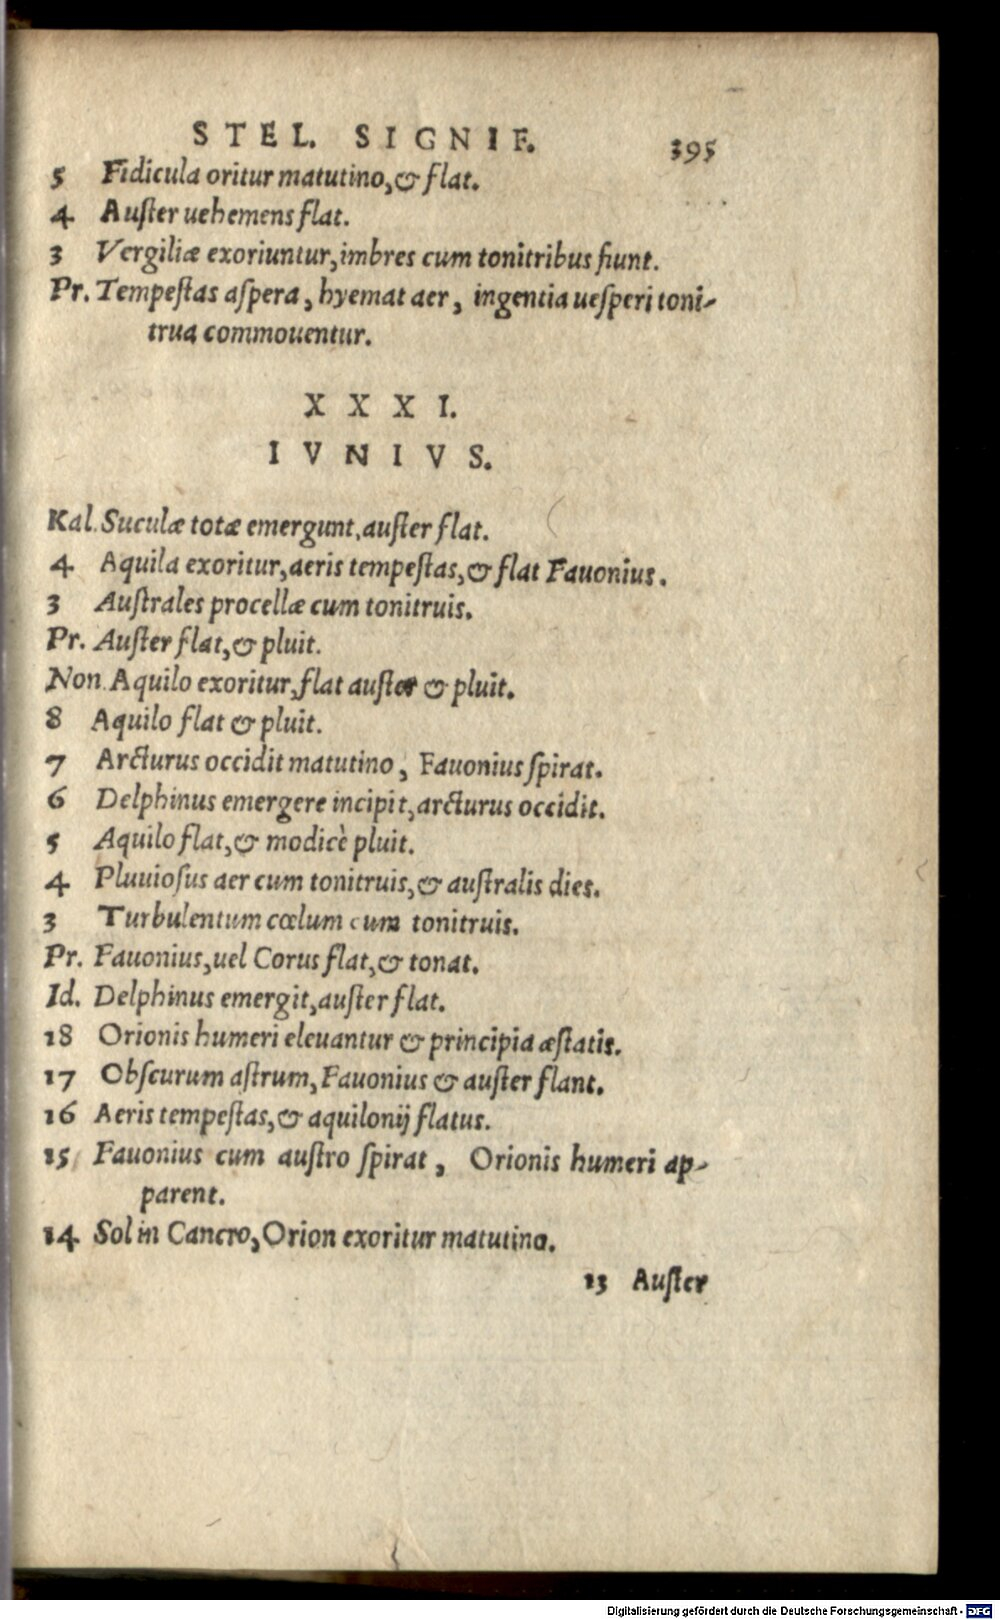 STEL. SIGNIF. 395
5 Fidicula oritur matutino, & flat.
4 Auſter uehemens flat.
3 Vergiliæ exoriuntur, imbres cum tonitribus fiunt.
Pr. Tempeſtas aſpera, hyemat aer, ingentia ueſperi toni-
trua commouentur.
XXXI.
IVNIVS.
Kal. Suculæ totæ emergunt, auſter flat.
4 Aquila exoritur, aeris tempeſtas, & flat Fauonius.
3 Auſtrales procellæ cum tonitruis.
Pr. Auſter flat, & pluit.
Non. Aquilo exoritur, flat auſter & pluit.
8 Aquilo flat & pluit.
7 Arcturus occidit matutino, Fauonius ſpirat.
6 Delphinus emergere incipit, arcturus occidit.
5 Aquilo flat, & modicè pluit.
4 Pluuioſus aer cum tonitruis, & auſtralis dies.
3 Turbulentum cœlum cum tonitruis.
Pr. Fauonius, uel Corus flat, & tonat.
Id. Delphinus emergit, auſter flat.
18 Orionis humeri eleuantur & principia æſtatis.
17 Obſcurum aſtrum, Fauonius & auſter flant.
16 Aeris tempeſtas, & aquilonij flatus.
15 Fauonius cum auſtro ſpirat, Orionis humeri ap-
parent.
14 Sol in Cancro, Orion exoritur matutino.
13 Auſter
Digitalisierung gefördert durch die Deutsche Forschungsgemeinschaft - DFG